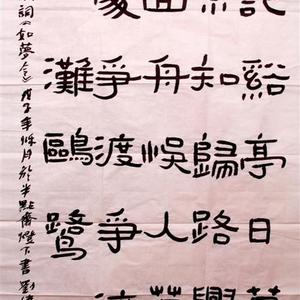 記谿亭日
知歸路興
回舟悞入
處爭渡爭渡
灘鷗鷺
詞《如夢令》戊子年秋月於半點齋燈下書 劉